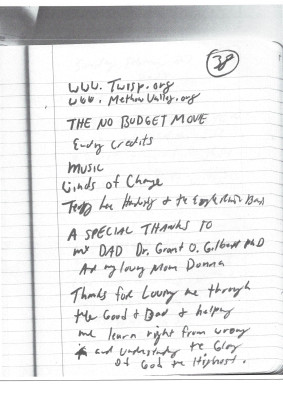 38
www. Twisp.org
www. Methow Valley.org
THE NO BUDGET MOVE
Ending Credits
Music
Winds of Change
Terry Lee & the Eagle River Band
A SPECIAL THANKS TO
my DAD Dr. Grant O. Gilbert PhD
And my loving Mom Donna
Thanks for Loving me through
the Good & Bad & helping
me learn right from wrong
and understanding the Glory
of God the Highest.